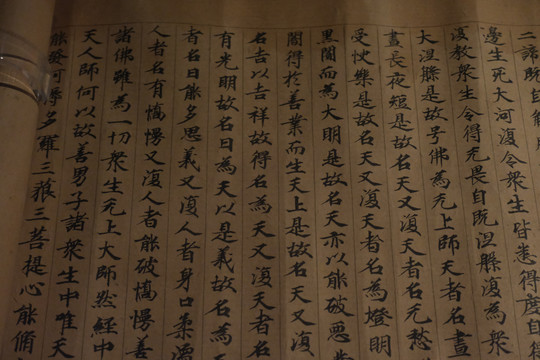 二諦既自解
邊生死大河復令衆生皆悉得度自
復教衆生令得无畏自既涅槃復為衆
大涅槃是故号佛為无上師天者名晝
晝長夜短是故名天又復天者名无愁
受快樂是故名天又復天者名為燈明
黑闇而為大明是故名天亦以能破惡
闇得於善業而生天上是故名天又復
名吉以吉祥故得名為天又復天者名
有光明故名日為天以是義故名為
者名曰能多思義又復人者身口柔濡
人者名有憍慢又復人者能破憍慢善
諸佛雖為一切衆生无上大師然經中
天人師何以故善男子諸衆生中唯天
能發阿耨多羅三藐三菩提心能脩